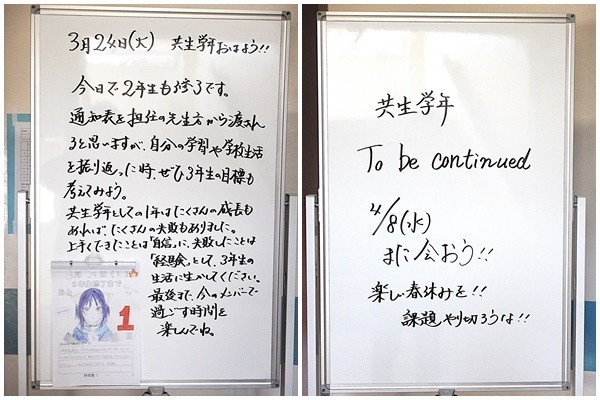 3月24日(火) 共生学年おはよう!!
今日で2年生も修了です。
通知表を担任の先生方から渡され
ると思いますが、自分の学習や学校生活
を振り返った時、ぜひ3年生の目標も
考えてみよう。
共生学年としての1年はたくさんの成長も
あれば、たくさんの失敗もありました。
上手くできたことは「自信」に、失敗したことは
「経験」として、3年生の
生活に生かしてください。
最後まで、今のメンバーで
過ごす時間を
楽しんでね。
1
共生学年
To be continued
4/8(水)
また会おう!!
楽しい春休みを!!
課題やり切ろうな!!